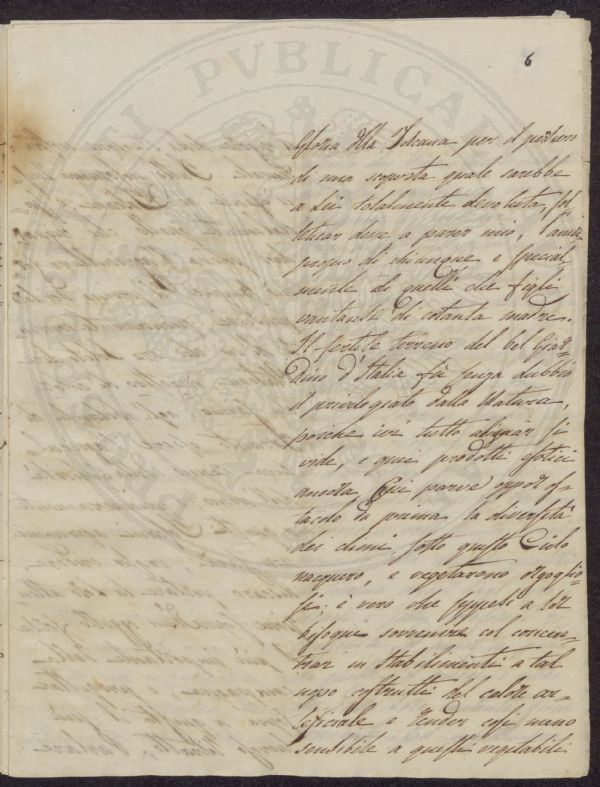 6
Gloria della Toscana per il pensiero
di una scoperta quale sarebbe
a Lei totalmente devoluta, sol
leticar deve a parer mio, l'ani
di chiunque e special
mente di quelli che figli
vantansi di cotanta madre.
Il fertile terreno del bel Giar-
dino d'Italia fù senza dubbio
il privilegiato dalla Natura,
poiche ivi tutto si
vide, e quei prodotti esotici
ancora cui parve oppor os-
tacolo da prima la diversità
dei climi, sotto questo Cielo
nacquero, e vegetarono orgoglio-
si; è vero che seppesi a tai
bisogni sovvenire col concen-
trar in Stabilimenti a tal
uopo costrutti del calore ar-
tificiale e render così meno
sensibile a questi vegetabili
PVBLICAE